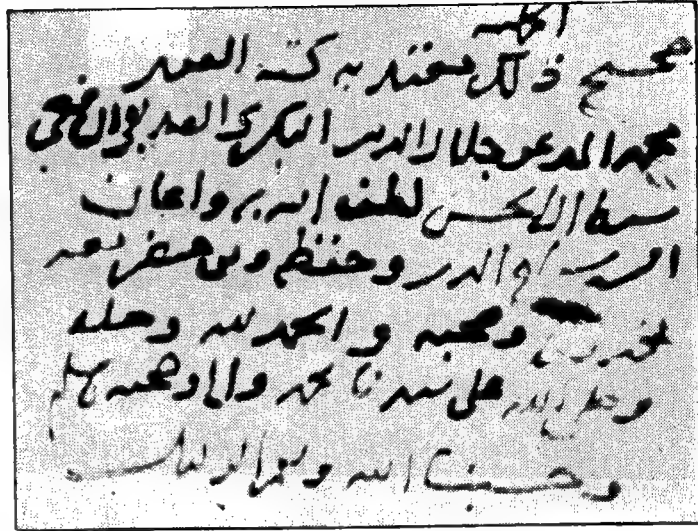 الحمد لله
صحيح ذلك معتمد به كتبه الفقير
محمد المدعو جلال الدين البكري الصديقي الشافعي
سبط آل الحسن لطف الله به وأعان
الدين وحفظ
ومحبيه والحمد لله وحده
وصلى الله على سيدنا محمد وآله وصحبه وسلم
وحسبنا الله ونعم الوكيل